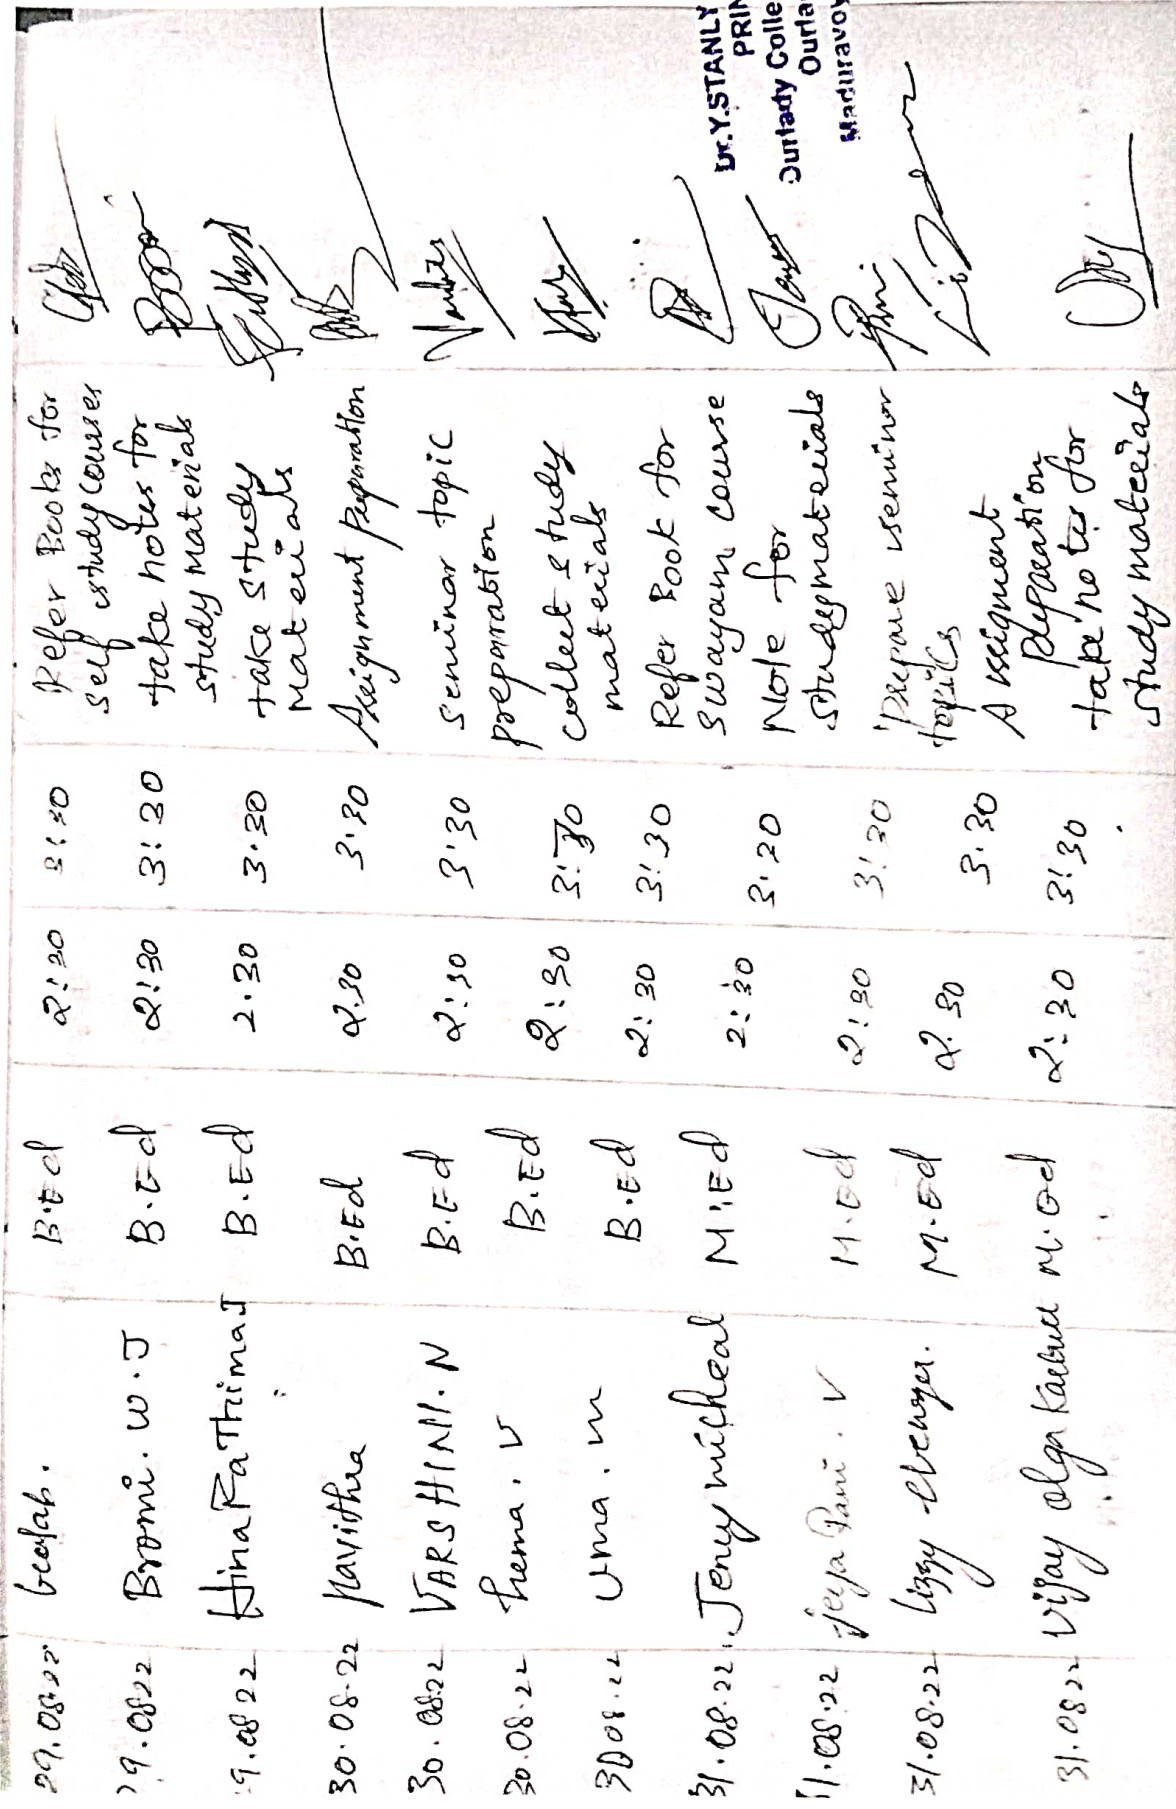 29.08.22 B.Ed 2:30 3:30 Refer Books for
self study courses
9.08.22 Bromi. W. J B.Ed 2:30 3:30 take notes for
study materials
9.08.22 Hina Fathima J B.Ed 2.30 3.30 take study
Materials
30.08.22 Pavithra B.Ed 2.30 3.30 Assignment Preparation
30.08.22 VARSHINI. N B.Ed 2:30 3.30 Seminar topic
preparation
30.08.22 hema. V B.Ed 2:30 3:30 collect study
materials
30.08.22 uma. m B.Ed 2:30 3:30 Refer Book for
Swayam course
31.08.22 Jeney micheal M.Ed 2:30 3.30 Note for
studymaterials
1.08.22 jeya Rani. V M.Ed 2:30 3:30 Prepare seminor
topics
31.08.22 Lizzy M.Ed 2.30 3.30 Assignment
Preparation
31.08.22 Vijay Olga M.Ed 2:30 3:30 take notes for
study materials
Dr.Y.STANLY
PRIN
Ourlady Colle
Ourla
Maduravoy